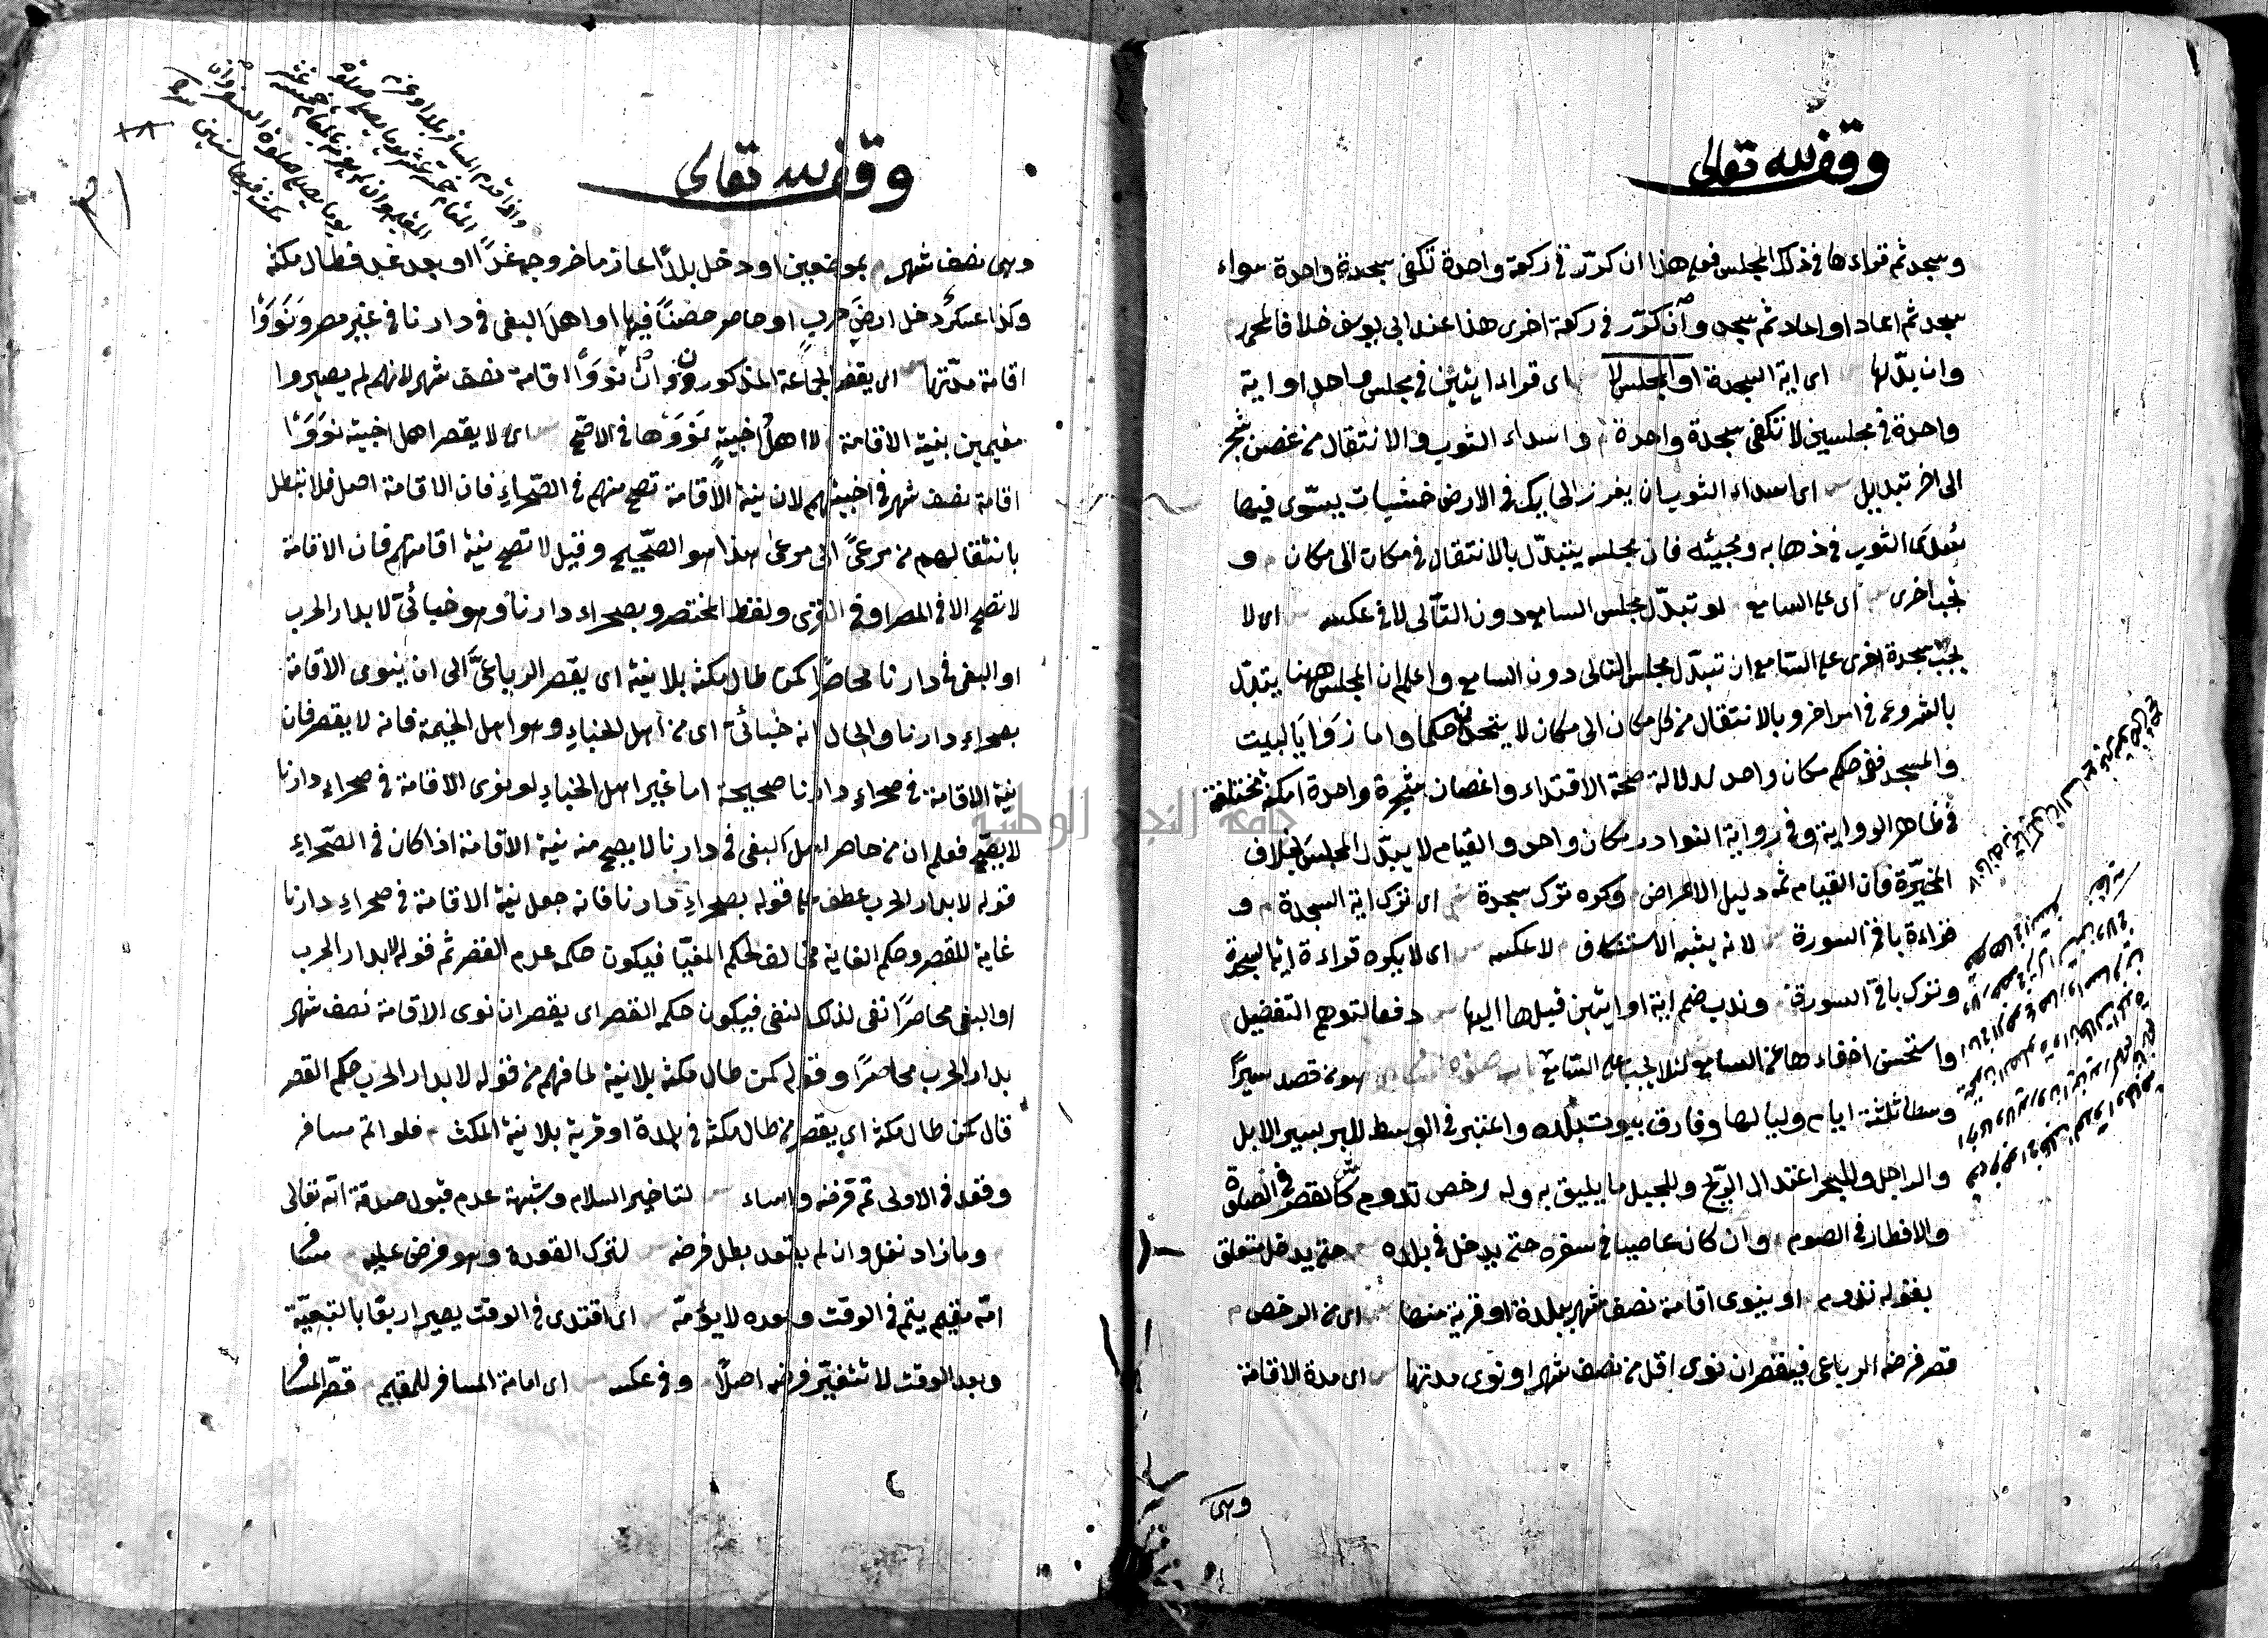 وقف لله تعالى
وسجد ثم قراءها في ذلك المجلس فعلى هذا ان كرر في ركعة واحدة تكفي سجدة واحدة سواء
سجد ثم اعاد او اعاد ثم سجد وان كرر في ركعة اخرى هذا عند ابي يوسف خلافا لمحمد
وان بدّلها اى اية السجدة او المجلس لا اى قراء ايتين في مجلس واحد او اية
واحدة في مجلسين لا تكفي سجدة واحدة واسداء الثوب والانتقال من غصن شجر
الى اخر تبديل اى اسداء الثوب ان يغرز الحايك في الارض خشبات يسوّى فيها
سَدَى الثوب في ذهابه ومجيئه فان مجلسه يتبدّل بالانتقال في مكان الى مكان و
تجب اخرى اى على السامع لو تبدّل مجلس السامع دون التالى لا في عكسه اى لا
يجب سجدة اخرى على السامع ان تبدّل مجلس التالى دون السامع واعلم ان المجلس ههنا يتبدّل
بالشروع في امر اخر وبالانتقال من كل مكان الى مكان لا يتحدان حكما واما زوايا البيت
والمسجد ففي حكم مكان واحد لدلالة صحة الاقتداء واغصان شجرة واحدة امكنة مختلفة
في ظاهر الرواية وفي رواية النوادر مكان واحد والقيام لا يبدّل المجلس بخلاف
المخيّرة فان القيام ثمه دليل الاعراض وكره ترك سجدة اى ترك اية السجدة و
قراءة باقي السورة لانه يشبه الاستنكاف لا عكسه اى لا يكره قراءة اية السجدة
وترك باقي السورة وندب ضم اية او ايتين قبلها اليها دفعا لتوهم التفضيل
واستحسن اخفاءها عن السامع لئلا يجب على السامع هو من قصد سيرًا
وسطا ثلثة ايام ولياليها وفارق بيوت بلده واعتبر في الوسط للبر سير الابل
والراجل وللبحر اعتدال الريح وللجبل ما يليق به وله رخص تدوم كالقصر في الصلوة
والافطار في الصوم وان كان عاصيا في سفره حتى يدخل في بلده حتى يدخل متعلق
بقوله تدوم او ينوى اقامة نصف شهر ببلدة او قرية منها اى من الرخص
قصر فرضه الرباعي فيقصر ان نوى اقل من نصف شهر او نوى مدتها اى مدة الاقامة
وهى
وقف لله تعالى
وهى نصف شهر بموضعين او دخل بلدًا عازما خروجه غدًا او بعد غد فطال مكثه
وكذا عسكرٌ دخل ارضَ حربٍ او حاصر حصنًا فيها او اهلَ البغى في دارنا في غير مصر ونَوَوْا
اقامة مدّتها اى يقصر الجماعة المذكورون وان نَوَوْا اقامة نصف شهر لانهم لم يصيروا
مقيمين بنية الاقامة لا اهلُ اخبيةٍ نَوَوْها في الاصحّ اى لا يقصر اهل اخبية نوَوْا
اقامة نصف شهر في اخبيتهم لان نية الاقامة تصح منهم في الصّحراءِ فان الاقامة اصل فلا تبطل
بانتقالهم من مرعىً الى مرعى هذا هو الصّحيح وقيل لا تصح نية اقامتهم فان الاقامة
لا تصح الا في المصر او في القرى ولفظ المختصر وبصحراء دارنا وهو خبائىّ لا بدار الحرب
او البغى في دارنا محاصرًا كمن طال مكثه بلا نية اى يقصر الرباعىَّ الى ان ينوى الاقامة
بصحراء دارنا والحال انه خبائىّ اى من اهل الخباءِ وهو اهل الخيمة فانه لا يقصر فان
نية الاقامة في صحراءِ دارنا صحيحة اما غير اهل الخباءِ لو نوى الاقامة في صحراءِ دارنا
لا يصحّ فعلم ان من حاصر اهل البغى في دارنا لا يصح منه نية الاقامة اذا كان في الصّحراءِ
قوله لا بدار الحرب عطف على قوله بصحراءِ دارنا فانه جعل نية الاقامة في صحراءِ دارنا
غاية للقصر وحكم الغاية مخالف لحكم المغيّا فيكون حكمه عدم القصر ثم قوله لا بدار الحرب
او البغى محاصرًا نفى لذلك النفى فيكون حكمه القصر اى يقصر ان نوى الاقامة نصف شهر
بدار الحرب محاصرًا وقوله كمن طال مكثه بلا نية لما فهم من قوله لا بدار الحرب حكم القصر
قال كمن طال مكثه اى يقصر من طال مكثه في بلدة او قرية بلا نية المكث فلو اتم مسافر
وقعد في الاولى تم فرضه واساء لتاخير السلام وشبهة عدم قبول صدقة الله تعالى
وما زاد نفل وان لم يقعد بطل فرضه لترك القعدة وهو فرض عليه مسافر
امّه مقيم يتم في الوقت وبعده لا يؤمّه اى اقتدى في الوقت يصير اربعًا بالتبعيّة
وبعد الوقت لا تتغيّر فرضه اصلًا وفي عكسه اى امامة المسافر للمقيم قصّر المسافر